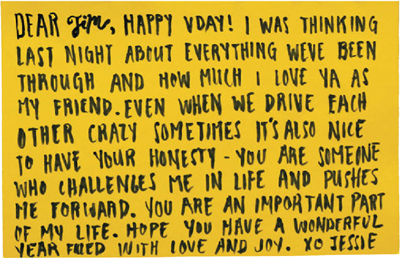 DEAR Jim, HAPPY VDAY! I WAS THINKING
LAST NIGHT ABOUT EVERYTHING WEVE BEEN
THROUGH AND HOW MUCH I LOVE YA AS
MY FRIEND. EVEN WHEN WE DRIVE EACH
OTHER CRAZY SOMETIMES IT'S ALSO NICE
TO HAVE YOUR HONESTY - YOU ARE SOMEONE
WHO CHALLENGES ME IN LIFE AND PUSHES
ME FORWARD. YOU ARE AN IMPORTANT PART
OF MY LIFE. HOPE YOU HAVE A WONDERFUL
YEAR FILLED WITH LOVE AND JOY. XO JESSIE